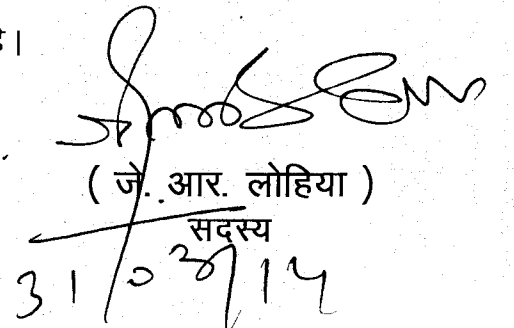 है।
( जे. आर. लोहिया )
सदस्य
31/03/14